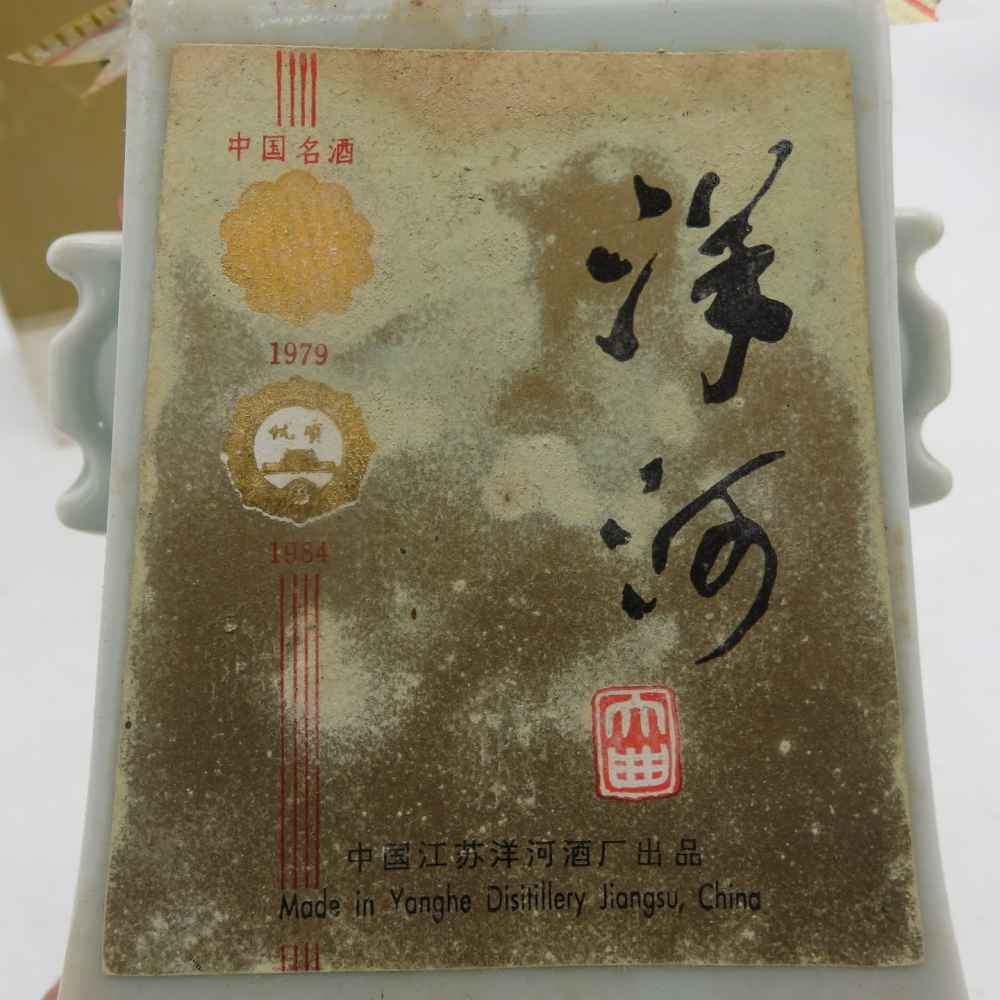 中国名酒
1979
优质
1984
洋河
大曲
中国江苏洋河酒厂出品
Made in Yanghe Disitillery Jiangsu, China